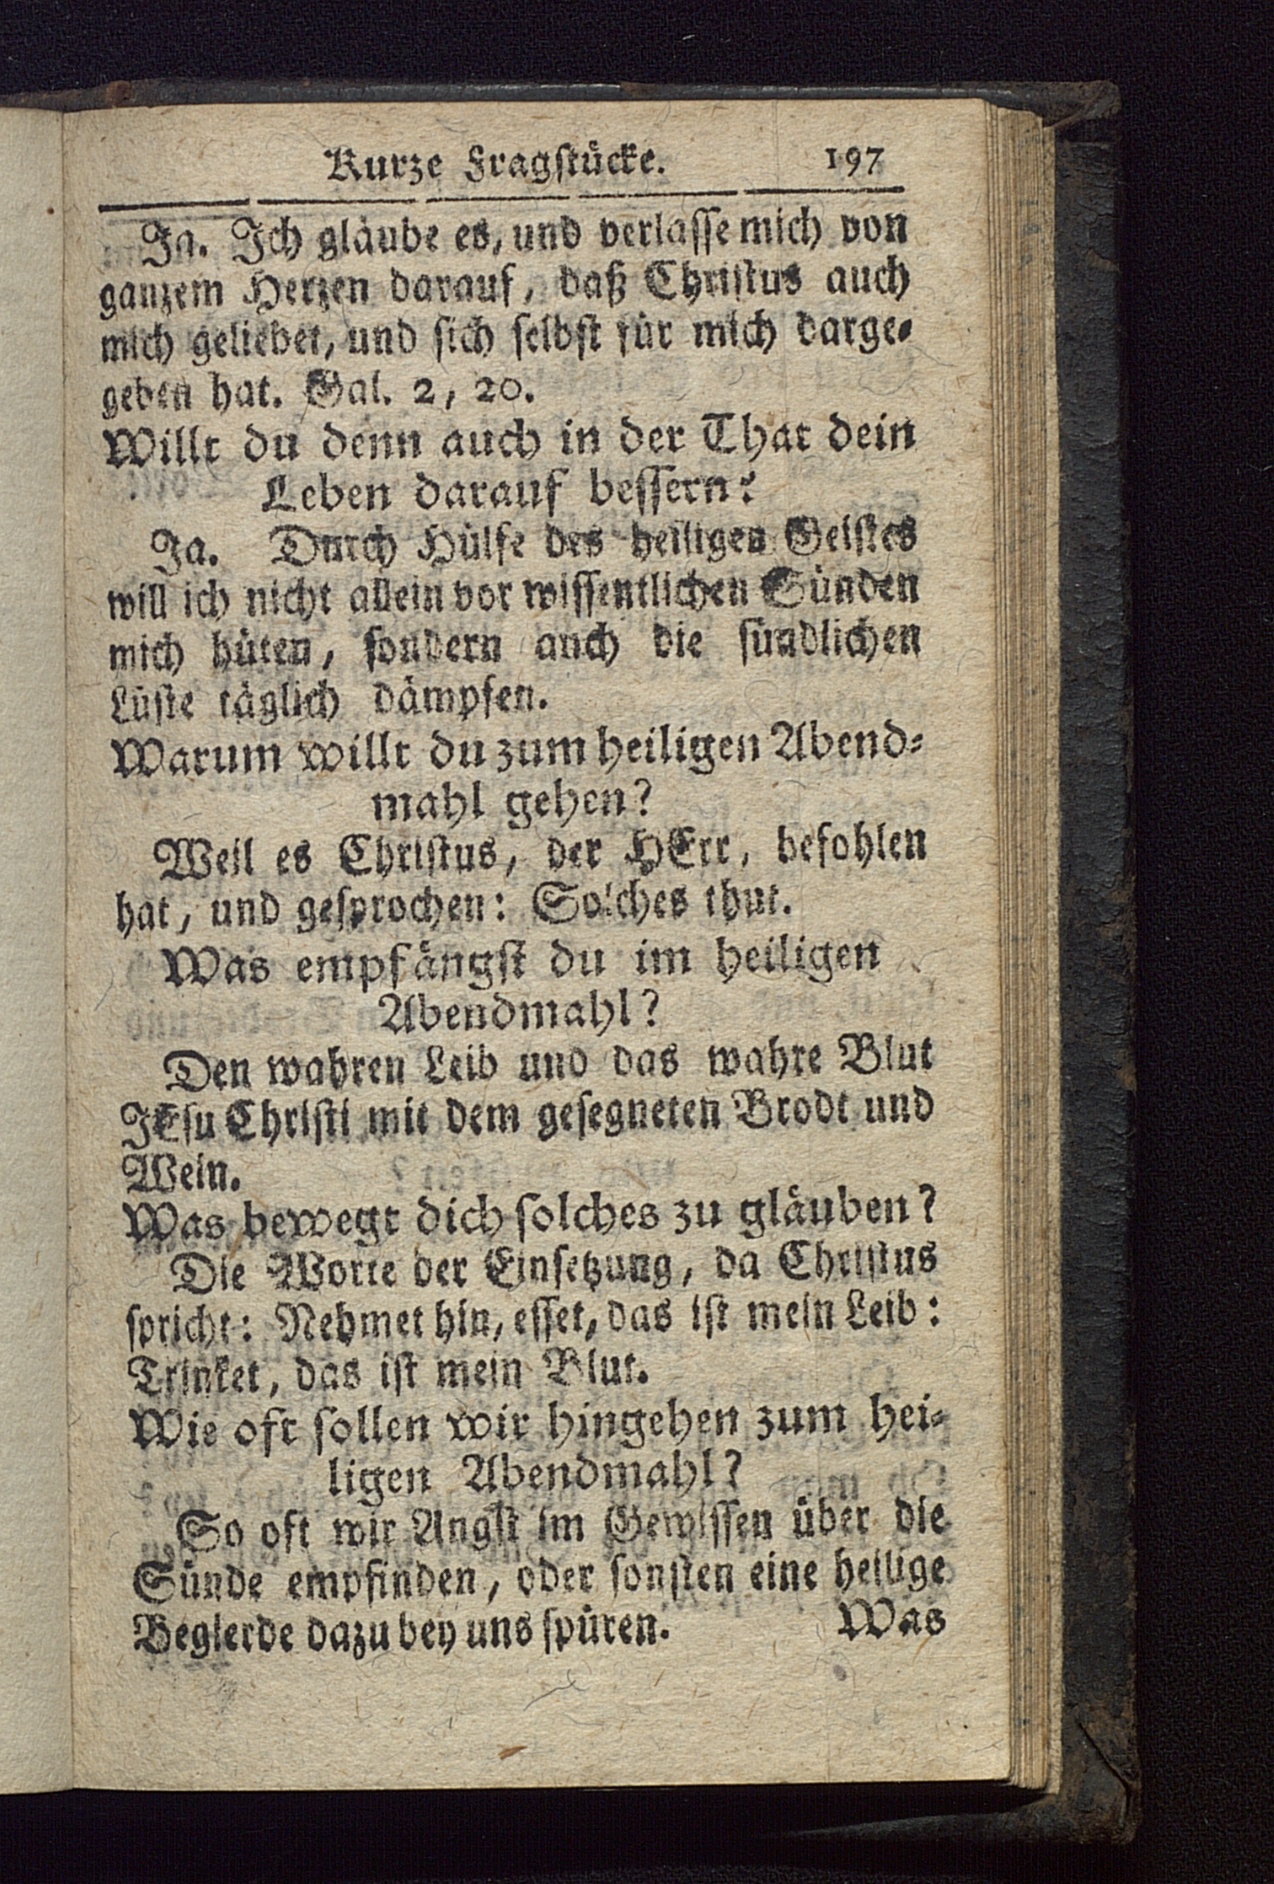 Kurze Fragstücke. 197
Ja. Ich gläube es, und verlasse mich von
ganzem Herzen darauf, daß Christus auch
mich geliebet, und sich selbst für mich darge-
geben hat. Gal. 2, 20.
Willt du denn auch in der That dein
Leben darauf bessern?
Ja. Durch Hülfe des heiligen Geistes
will ich nicht allein vor wissentlichen Sünden
mich hüten, sondern auch die sündlichen
Lüste täglich dämpfen.
Warum willt du zum heiligen Abend-
mahl gehen?
Weil es Christus, der HErr, befohlen
hat, und gesprochen: Solches thut.
Was empfängst du im heiligen
Abendmahl?
Den wahren Leib und das wahre Blut
JEsu Christi mit dem gesegneten Brodt und
Wein.
Was bewegt dich solches zu gläuben?
Die Worte der Einsetzung, da Christus
spricht: Nehmet hin, esset, das ist mein Leib:
Trinket, das ist mein Blut.
Wie oft sollen wir hingehen zum hei-
ligen Abendmahl?
So oft wir Angst im Gewissen über die
Sünde empfinden, oder sonsten eine heilige
Begierde dazu bey uns spüren. Was